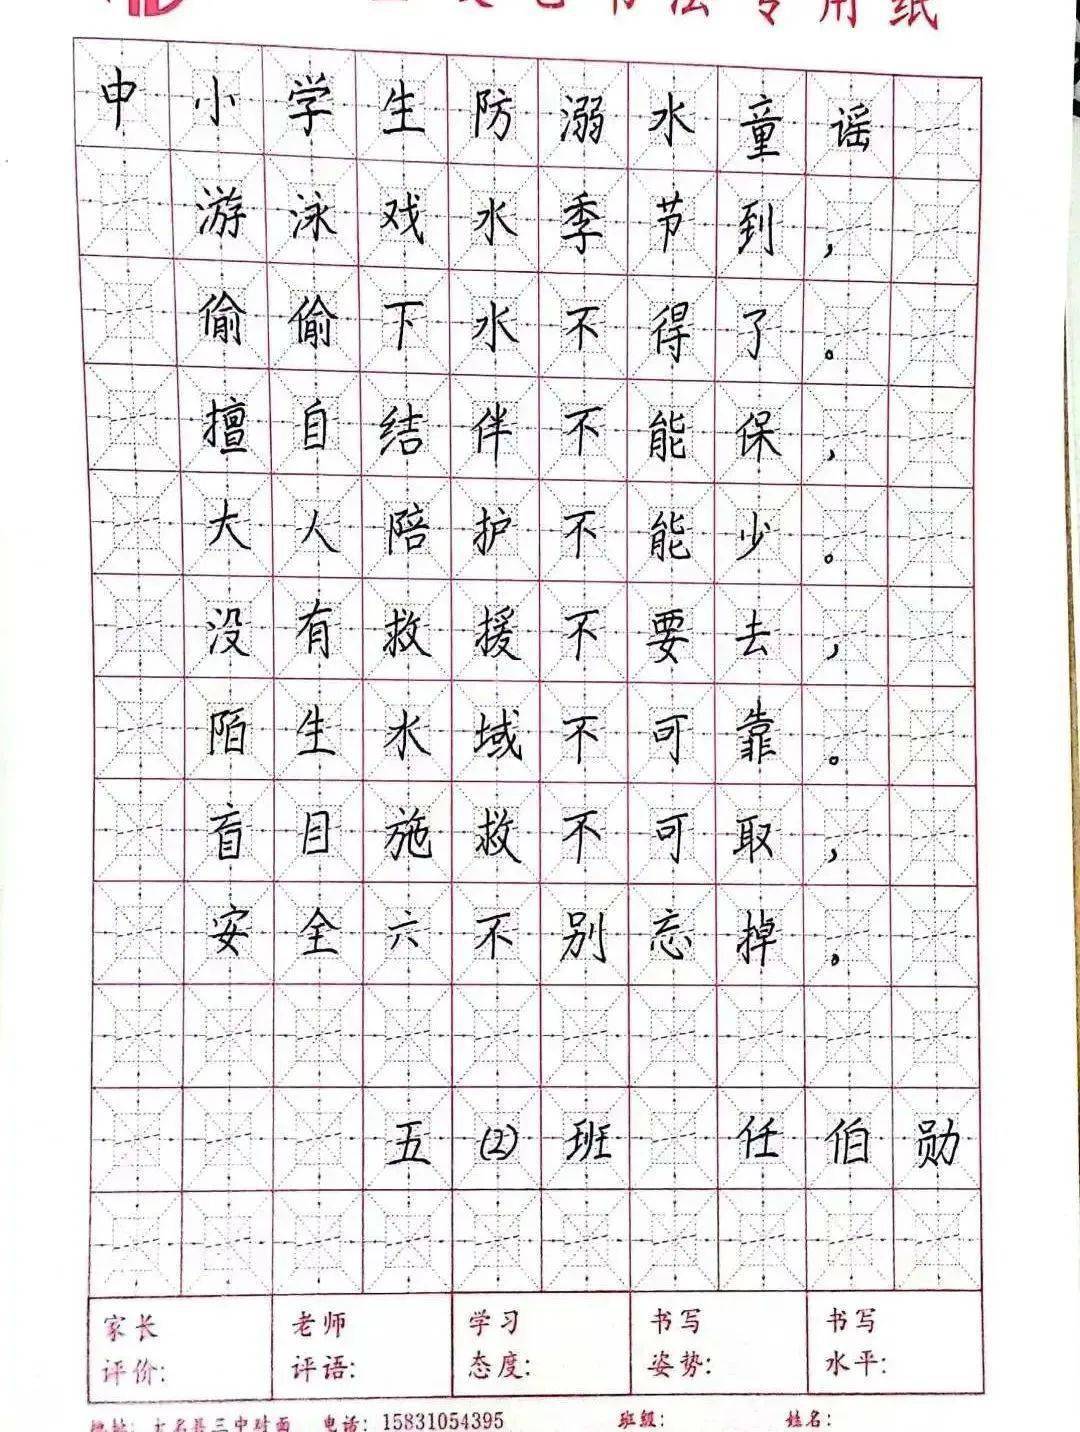 书法专用纸
中小学生防溺水童谣
游泳戏水季节到，
偷偷下水不得了。
擅自结伴不能保，
大人陪护不能少。
没有救援不要去，
陌生水域不可靠。
盲目施救不可取，
安全六不别忘掉。
五(2)班 任伯勋
家长 老师 学习 书写 书写
评价: 评语: 态度: 姿势: 水平:
地址: 大名县三中对面 电话: 15831054395 班级: 姓名: